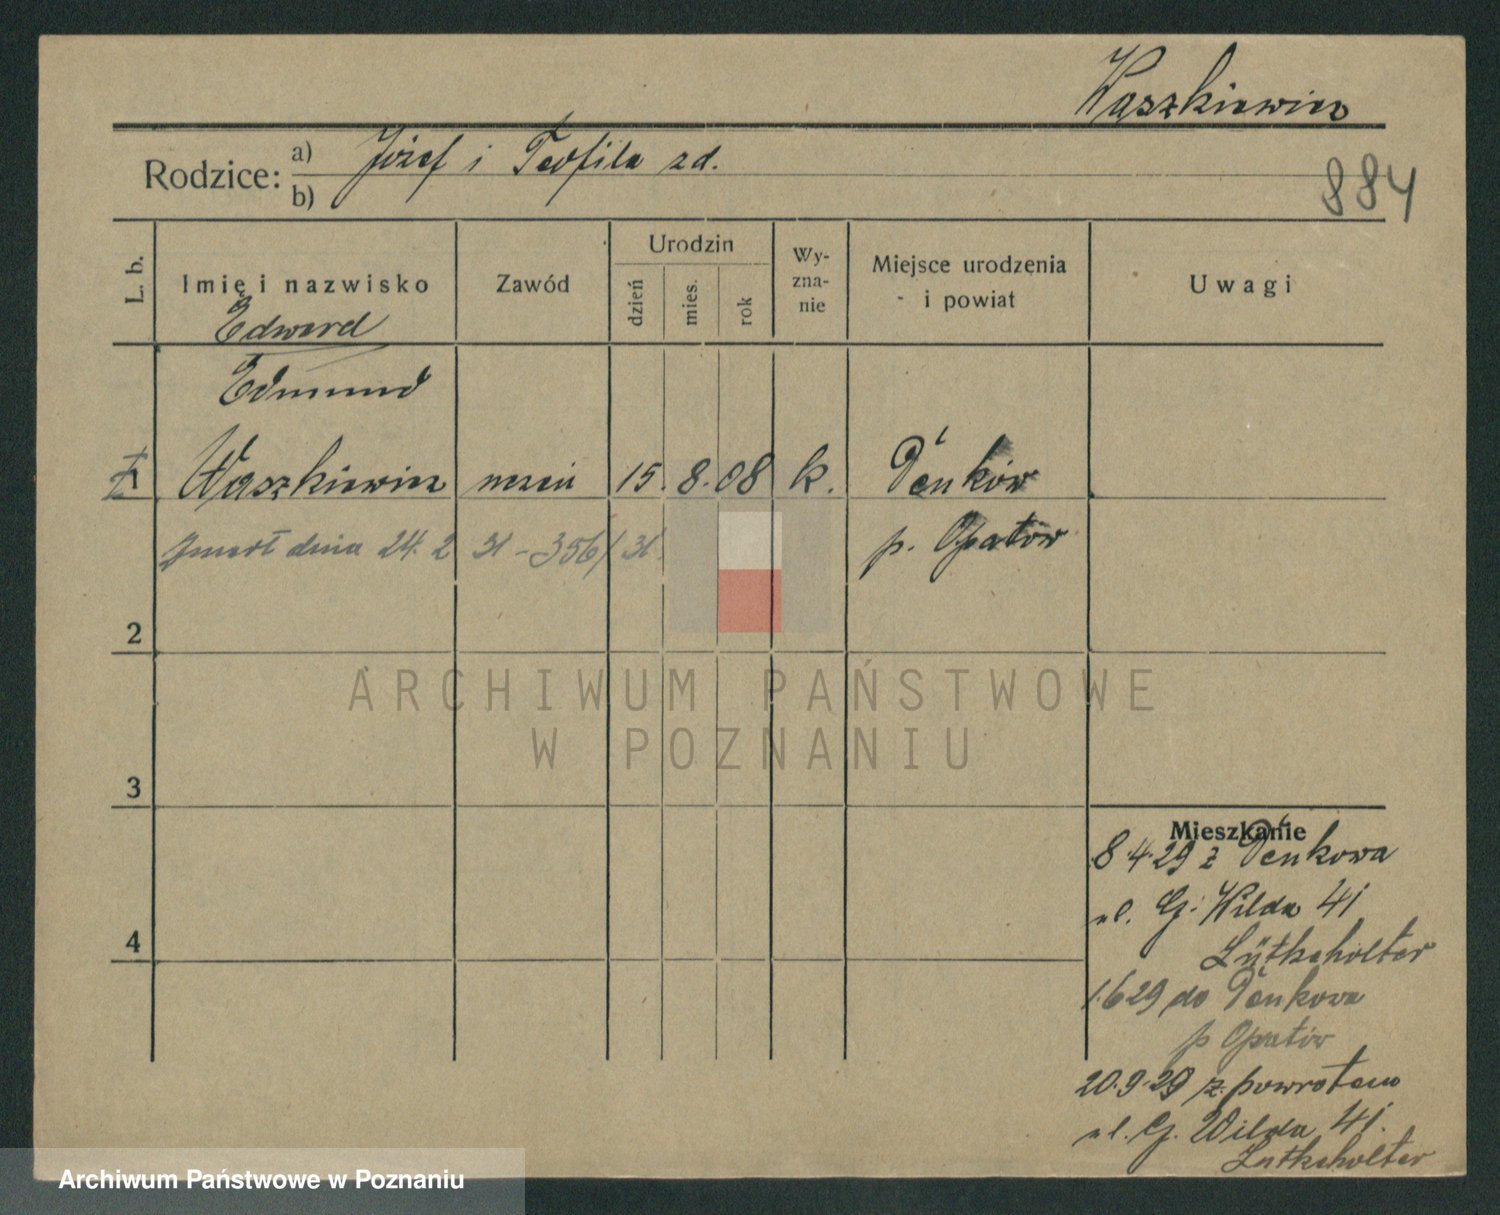 Wąszkiewicz
Rodzice: a) Józef i Teofila zd.
b)
884
L. b.
Imię i nazwisko
Zawód
Urodzin
dzień
mies.
rok
Wy-
zna-
nie
Miejsce urodzenia
i powiat
Uwagi
Edward
Edmund
1 Wąszkiewicz uczeń 15. 8. 08 k. Denków
zmarł dnia 24. 2 31 - 356/31
p. Opatów
2
3
4
Mieszkanie
8.4.29 z Denkowa
ul. G. Wilda 41
Lütkeholter
1.6.29 do Denkowa
p Opatów
20.9.29 z powrotem
ul. G. Wilda 41.
Lutkeholter
ARCHIWUM PAŃSTWOWE
W POZNANIU
Archiwum Państwowe w Poznaniu